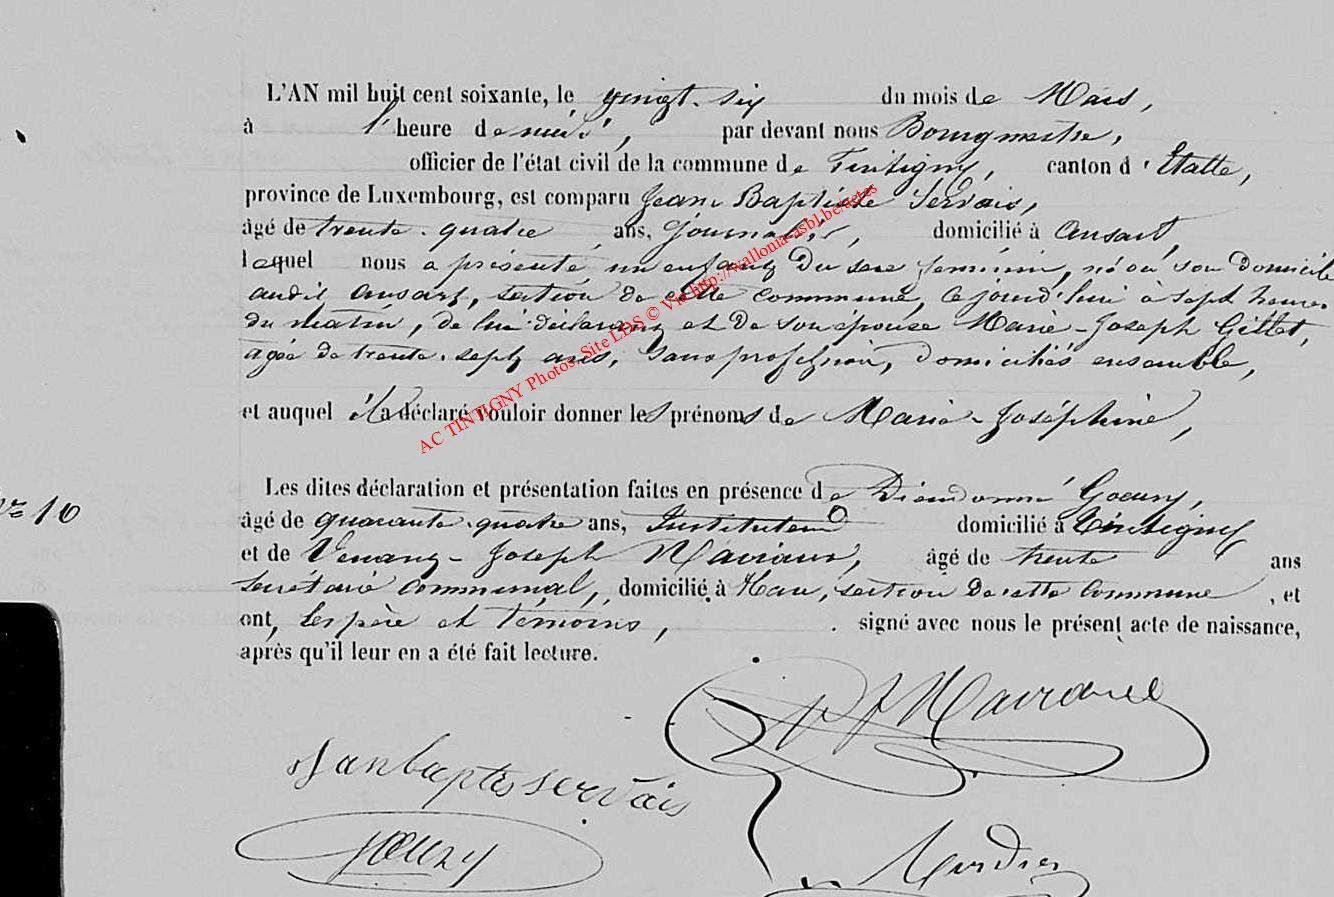 L'AN mil huit cent soixante, le vingt-six du mois de Mars,
à l'heure de midi, par devant nous Bourgmestre,
officier de l'état civil de la commune de Tintigny, canton d'Etalle,
province de Luxembourg, est comparu Jean Baptiste Servais,
âgé de trente-quatre ans, Journalier, domicilié à Ansart,
lequel nous a présenté un enfant du sexe féminin, né en son domicile
audit Ansart, section de cette commune, ce jourd'hui à sept heures
du matin, de lui déclarant et de son épouse Marie-Joseph Gillet,
agée de trente-sept ans, sans profession, domiciliés ensemble,
et auquel il a déclaré vouloir donner les prénoms de Marie-Joséphine,
Les dites déclaration et présentation faites en présence de Dieudonné Goeury,
N° 10
âgé de quarante-quatre ans, Instituteur domicilié à Tintigny
et de Joseph ans, âgé de trente ans
secrétaire communal, domicilié à Han, section de cette commune, et
ont, les père et témoins, signé avec nous le présent acte de naissance,
après qu'il leur en a été fait lecture.
Jan bapte servais
Goeury
AC TINTIGNY Photos. Site LDS © Via http://wallonia-asbl.be/actes